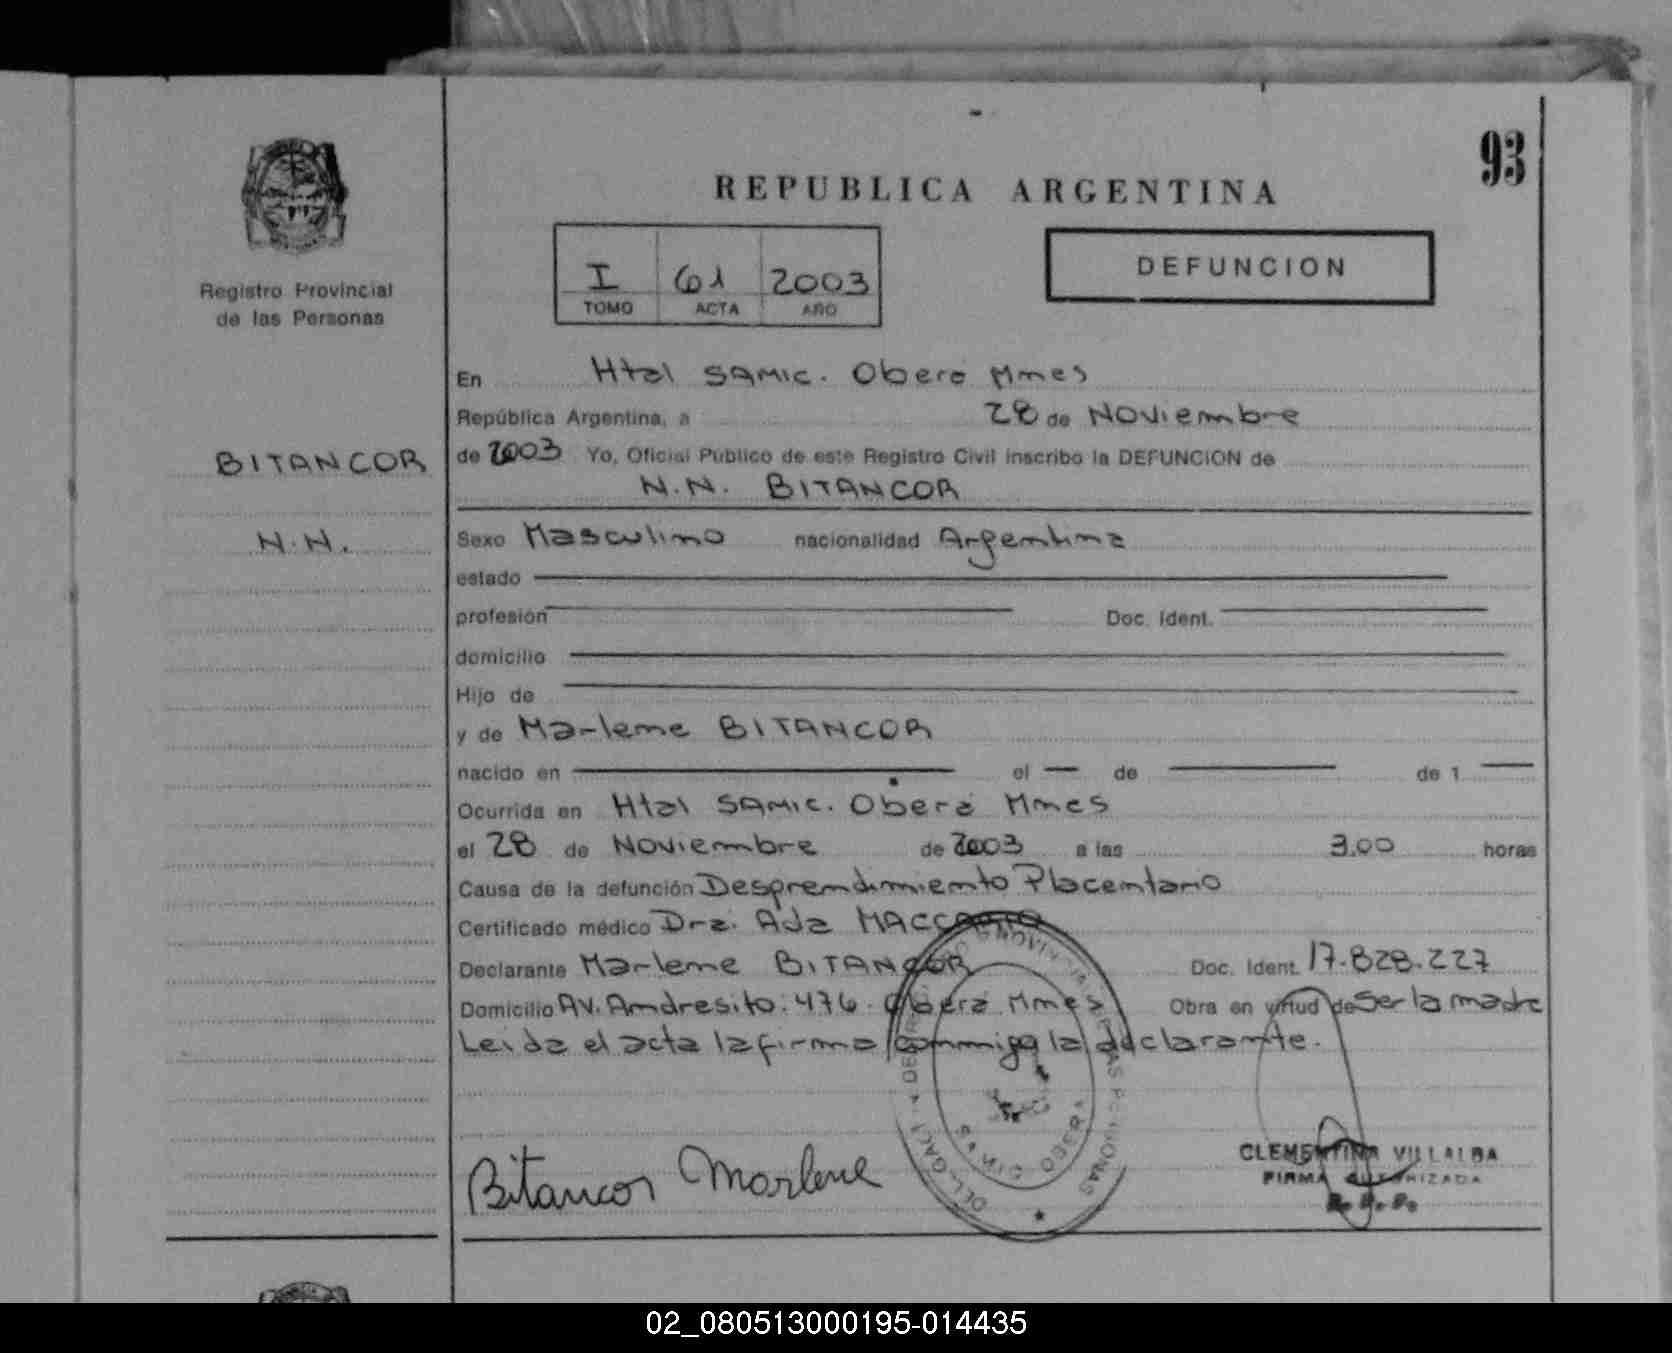 93
REPUBLICA ARGENTINA
I 61 2003
TOMO ACTA AÑO
DEFUNCION
Registro Provincial
de las Personas
BITANCOR
N.N.
En Htal SAMIC. Oberá Mnes
República Argentina, a 28 de Noviembre
de 2003 Yo, Oficial Público de este Registro Civil inscribo la DEFUNCION de
N.N. BITANCOR
Sexo Masculino nacionalidad Argentina
estado
profesión Doc. Ident.
domicilio
Hijo de
y de Marlene BITANCOR
nacido en el de de 1
Ocurrida en Htal SAMIC. Oberá Mnes
el 28 de Noviembre de 2003 a las 3.00 horas
Causa de la defunción Desprendimiento Placentario
Certificado médico Dra. Ada
Declarante Marlene BITANCOR Doc. Ident. 17.828.227
Domicilio AV. Andresito: 476. Oberá Mnes Obra en virtud de Ser la madre
Leida el acta la firma conmigo la declarante.
Bitancor Marlene
CLEMENTINA VILLALBA
FIRMA AUTORIZADA
R. P. P.
02_080513000195-014435